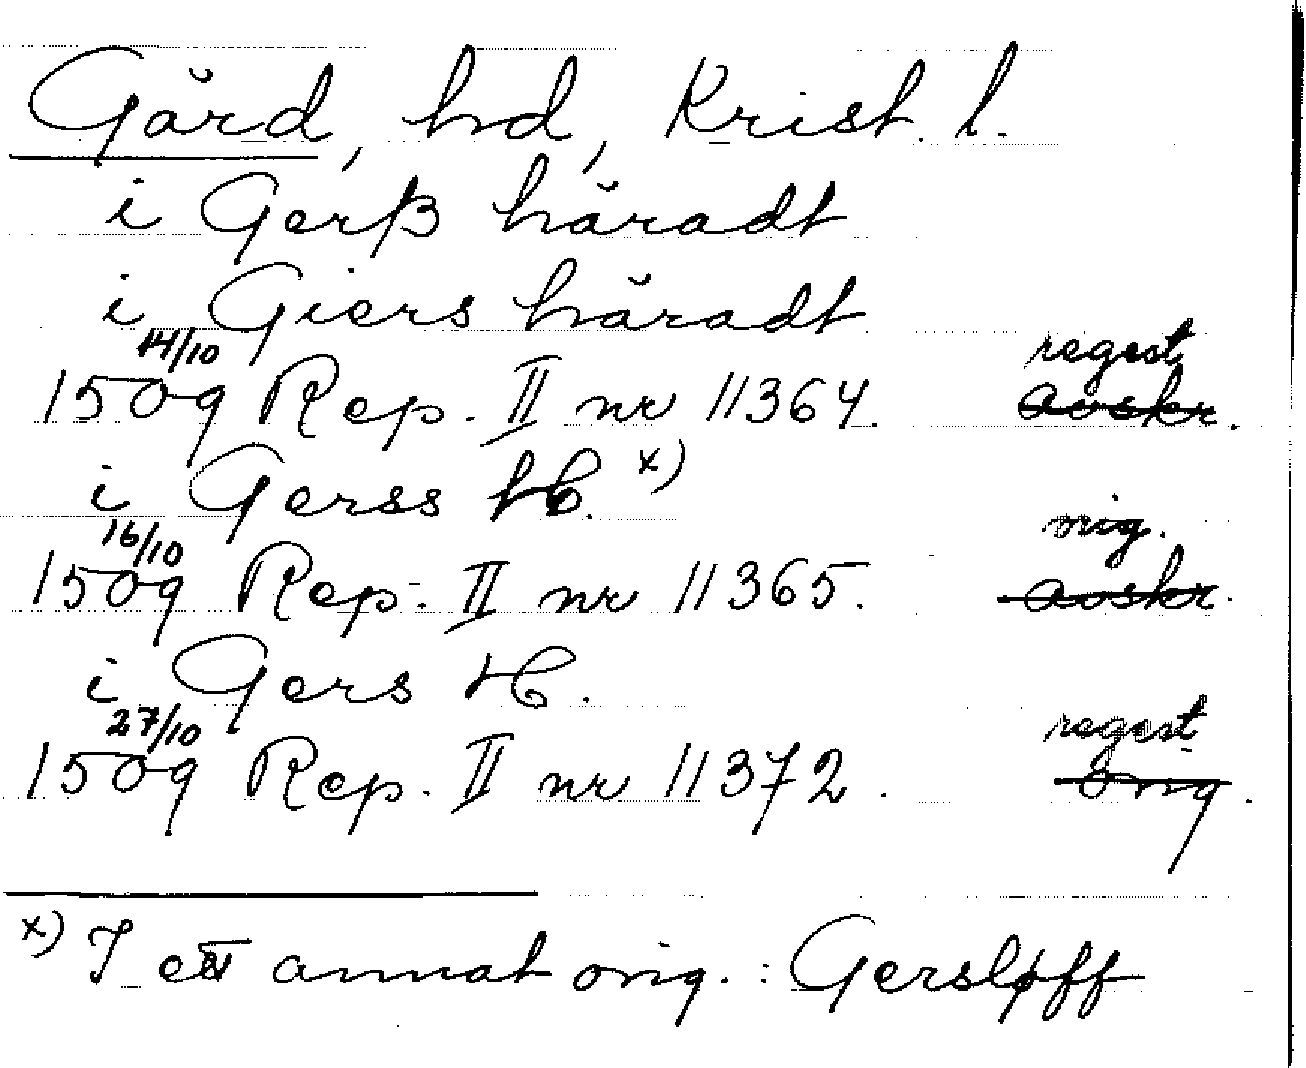 Gärd, hd, Krist. l.
i Gerß häradt
i Giers häradt
14/10 regest
1509 Rep. II nr 11364. avskr.
i Gerss H. x)
16/10 orig.
1509 Rep. II nr 11365. avskr.
i Gers H.
27/10 regest
1509 Rep. II nr 11372. orig.
x) I ett annat orig. : Gersløff